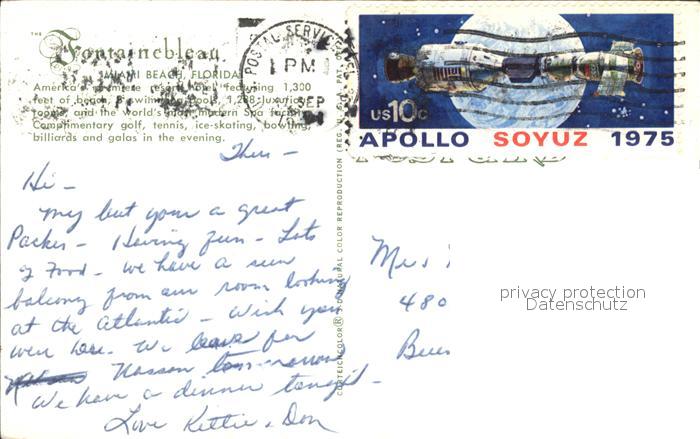 THE
Fontainebleau
MIAMI BEACH, FLORIDA
America's premiere resort hotel featuring 1,300
feet of beach, swimming pools, 1,288 luxurious
rooms, and the world's most modern Spa facilities.
Complimentary golf, tennis, ice-skating, bowling,
billiards and galas in the evening.
POSTAL SERVICE
1 PM
SEP
US 10c
APOLLO SOYUZ 1975
POST CARD
Thurs -
Hi -
My but your a great
Packer - Having fun - Lots
of Food - we have a sun
balcony from our room looking
at the Atlantic - Wish you
were here. We leave for
Nassau tomorrow
We have a dinner tonight -
Love Kittie & Don
NATURAL COLOR REPRODUCTION
Mrs
480
privacy protection
Datenschutz